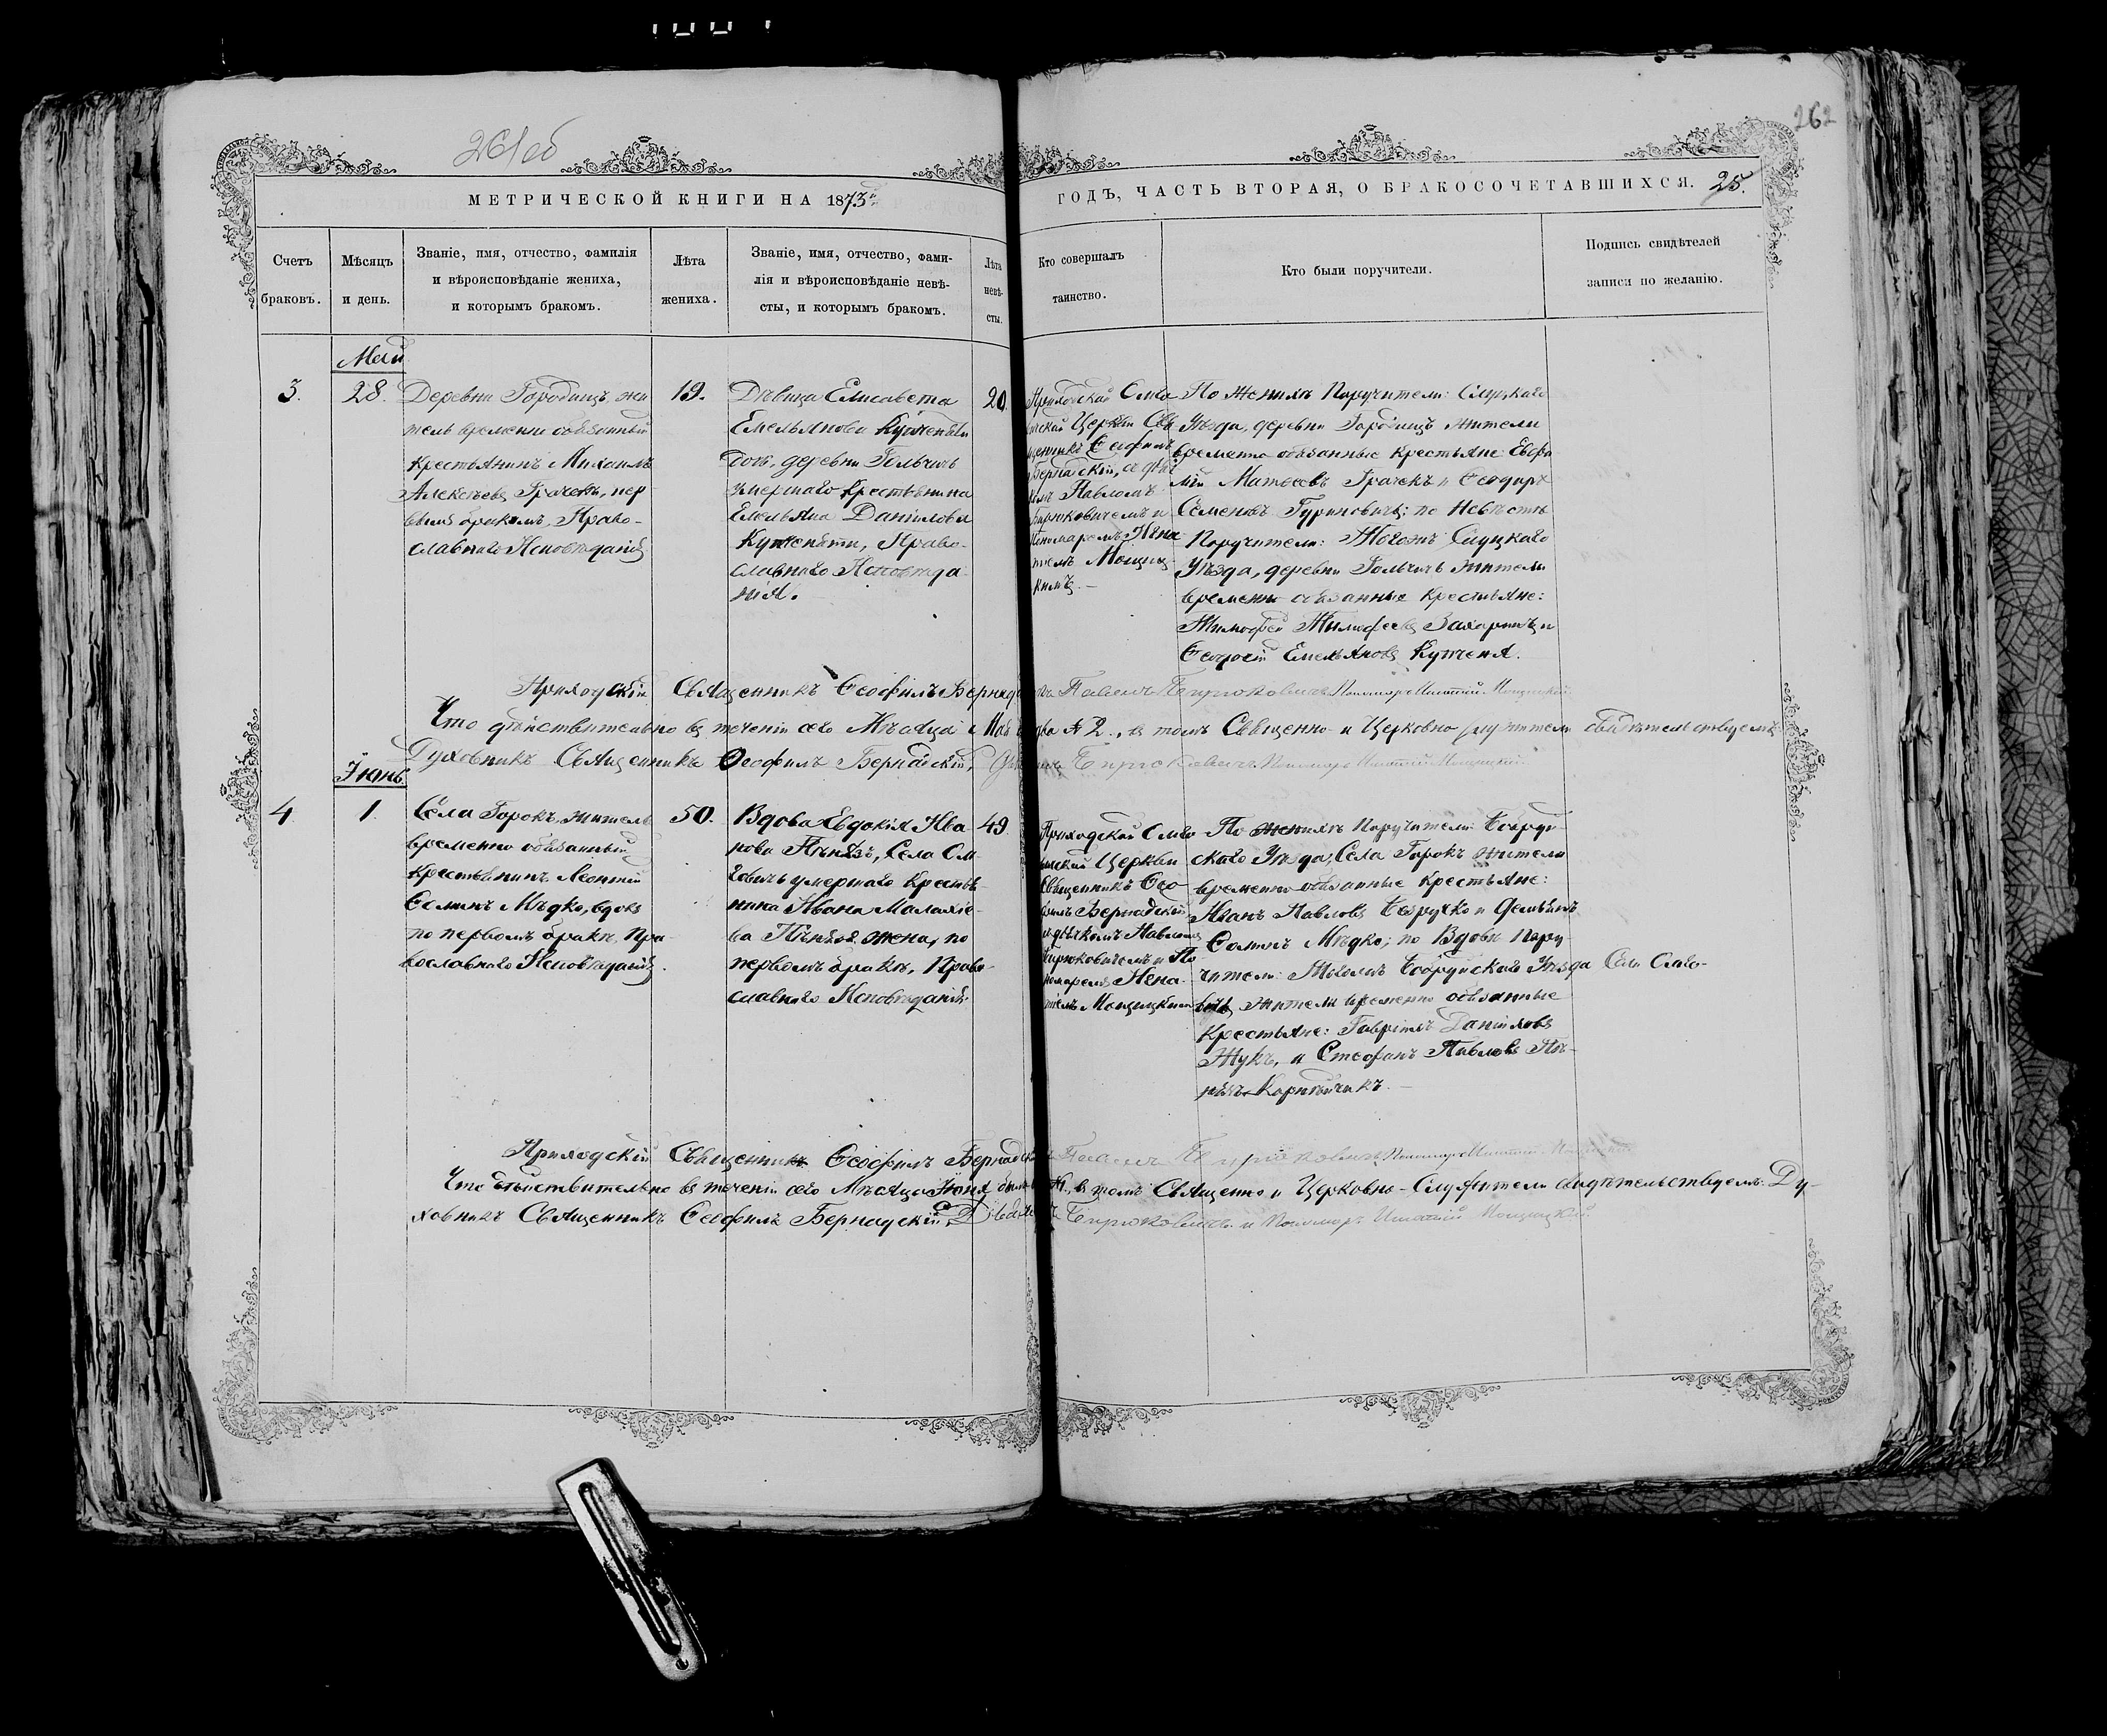 261об
262
МЕТРИЧЕСКОЙ КНИГИ НА 1873й
ГОДЪ, ЧАСТЬ ВТОРАЯ, О БРАКОСОЧЕТАВШИХСЯ. 25.
Счетъ
браковъ.
Мѣсяцъ
и день.
Званіе, имя, отчество, фамилія
и вѣроисповѣданіе жениха,
и которымъ бракомъ.
Лѣта
жениха.
Званіе, имя, отчество, фами-
лія и вѣроисповѣданіе невѣ-
сты, и которымъ бракомъ.
Лѣта
невѣ-
сты.
Кто совершалъ
таинство.
Кто были поручители.
Подпись свидѣтелей
записи по желанію.
Май
3.
28.
Деревни Городищъ жи
тель временно обязанный
Крестьянинъ Михаилъ
Алексѣевъ Грачекъ, пер
вымъ бракомъ, Право-
славнаго Исповѣданія
19.
Дѣвица Елисавета
Емельянова
дочь, деревни Гольчичъ
умершаго Крестьянина
Емельяна Даніилова
Право-
славнаго Исповѣда
нія.
20
Приходской
Церкви Свя
щенникъ Ѳеофилъ
Бернадскій, съ дья
комъ Павломъ
Бирюковичемъ и
Пономаремъ Игна
тіемъ Мощиц-
кимъ.
По Женихѣ Поручители: Слуцкаго
Уѣзда, деревни Городищъ жители
временно обязанные Крестьяне: Евфи
мій Матѳеевъ Грачекъ и Ѳеодоръ
Семеновъ Гуриновичъ; по Невѣстѣ
Поручители: Тогожъ Слуцкаго
Уѣзда, деревни Гольчичъ жители
временно обязанные Крестьяне:
Тимофей Тимофеевъ Захаричъ и
Емельяновъ Кутченя.
Приходскій Священникъ Ѳеофилъ Бернадскій Павелъ Бирюковичъ Пономарь Игнатій Мощицкій
Что дѣйствительно въ теченіи сего Мѣсяца Мая № 2., въ томъ Священно- и Церковно служители свидѣтельствуемъ
Духовникъ Священникъ Ѳеофилъ Бернадскій, Бирюковичъ Пономарь Игнатій Мощицкій
Іюнь
4
1.
Села Горокъ житель
временно обязанный
Крестьянинъ Леонтій
Мѣдко, вдовъ
по первомъ бракѣ, Пра-
вославнаго Исповѣданія.
50.
Вдова Евдокія Ива
нова
умершаго Крестья-
нина Ивана Малахіе-
ва жена, по
первомъ бракѣ, Право-
славнаго Исповѣданія
49
Приходской
Церкви
Священникъ Ѳео-
филъ Бернадскій
съ дьякомъ Павломъ
Бирюковичемъ и По
номаремъ Игна-
тіемъ Мощицкимъ
По женихѣ Поручители Бобруй
скаго Уѣзда, Села Горокъ жители
временно обязанные Крестьяне:
Иванъ Павловъ и
Мѣдко; по Вдовѣ Пору
чители: Тогожъ Бобруйскаго Уѣзда Села
жители временно обязанные
Крестьяне: Гавріилъ Даніиловъ
Жукъ, и Стефанъ Павловъ
Приходскій Священникъ Ѳеофилъ Бернадскій Павелъ Бирюковичъ Пономарь Игнатій Мощицкій
Что дѣйствительно въ теченіи сего Мѣсяца Іюня въ томъ Священно и Церковно-Служители свидѣтельствуемъ. Ду-
ховникъ Священникъ Ѳеофилъ Бернадскій, Бирюковичъ и Пономарь Игнатій Мощицкій